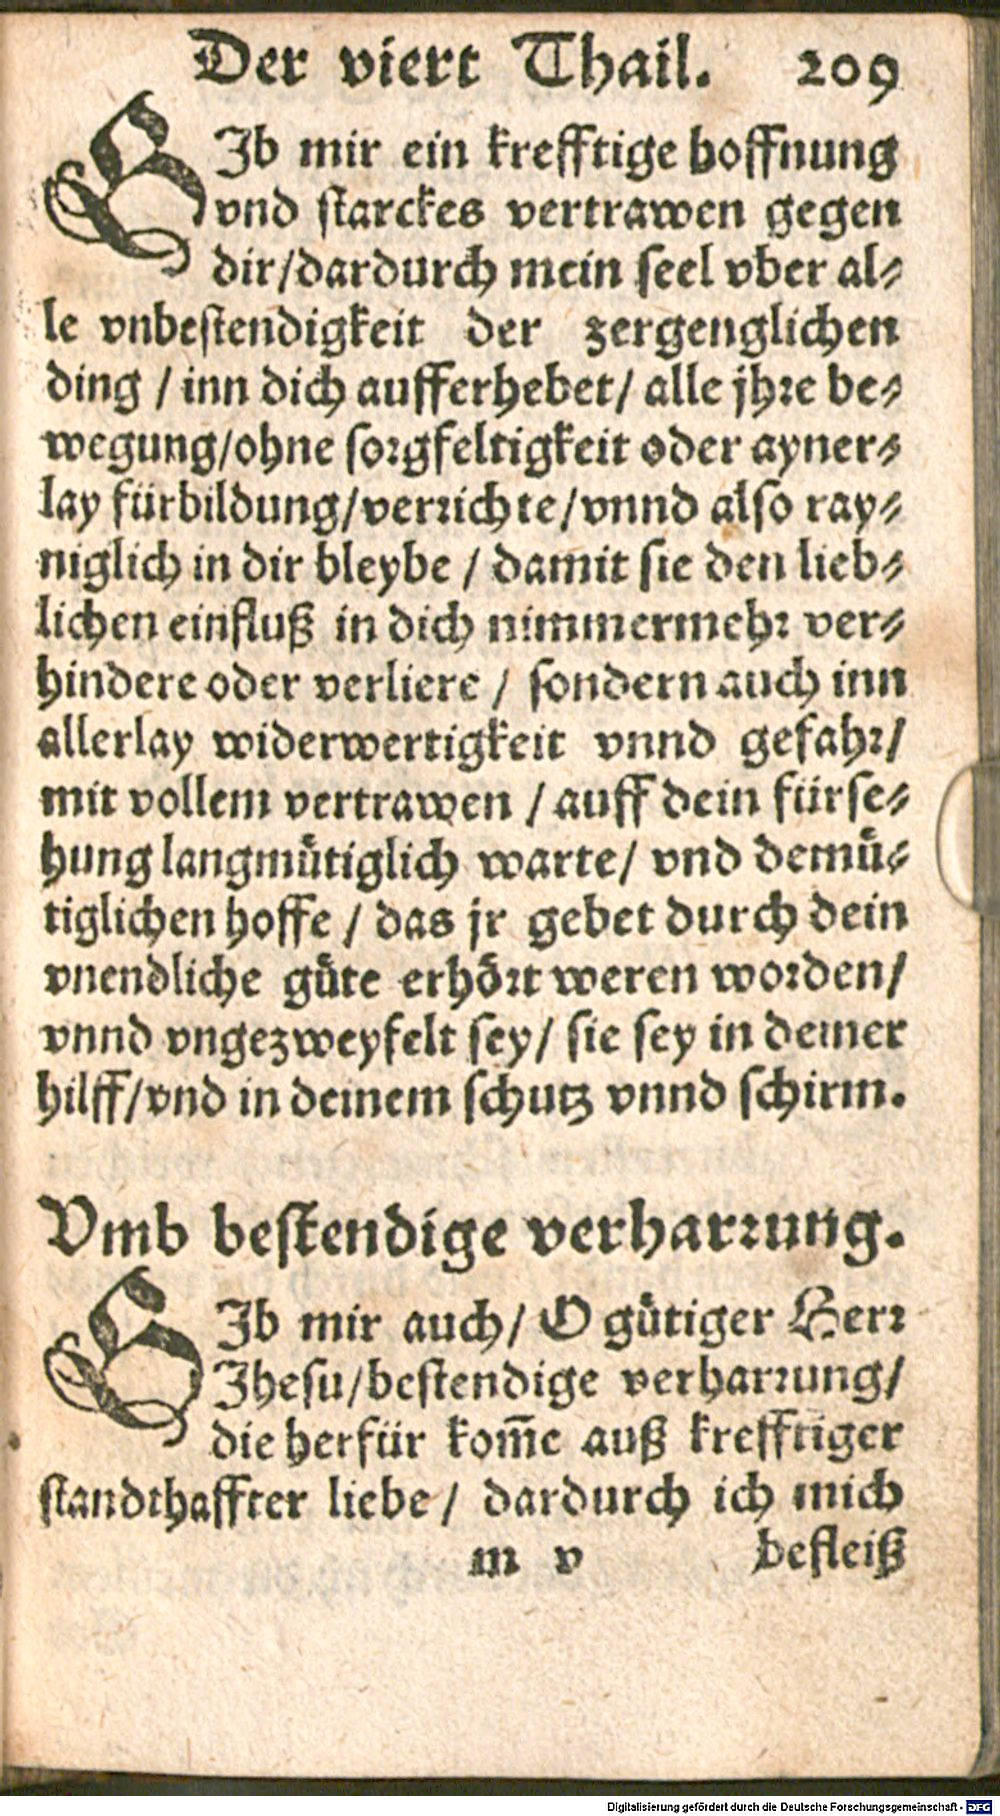 Der viert Thail. 209
GIb mir ein krefftige hoffnung
vnd starckes vertrawen gegen
dir/dardurch mein seel vber al⸗
le vnbestendigkeit der zergenglichen
ding / inn dich aufferhebet/ alle jhre be⸗
wegung/ohne sorgfeltigkeit oder ayner⸗
lay fürbildung/verrichte/vnnd also ray⸗
niglich in dir bleybe / damit sie den lieb⸗
lichen einfluß in dich nimmermehr ver⸗
hindere oder verliere / sondern auch inn
allerlay widerwertigkeit vnnd gefahr/
mit vollem vertrawen / auff dein fürse⸗
hung langmütiglich warte/ vnd demü⸗
tiglichen hoffe / das jr gebet durch dein
vnendliche güte erhört weren worden/
vnnd vngezweyfelt sey/ sie sey in deiner
hilff/vnd in deinem schutz vnnd schirm.
Vmb bestendige verharrung.
GIb mir auch/ O gütiger Herr
Jhesu/bestendige verharrung/
die herfür kom̃e auß krefftiger
standthaffter liebe/ dardurch ich mich
m v befleiß
Digitalisierung gefördert durch die Deutsche Forschungsgemeinschaft - DFG